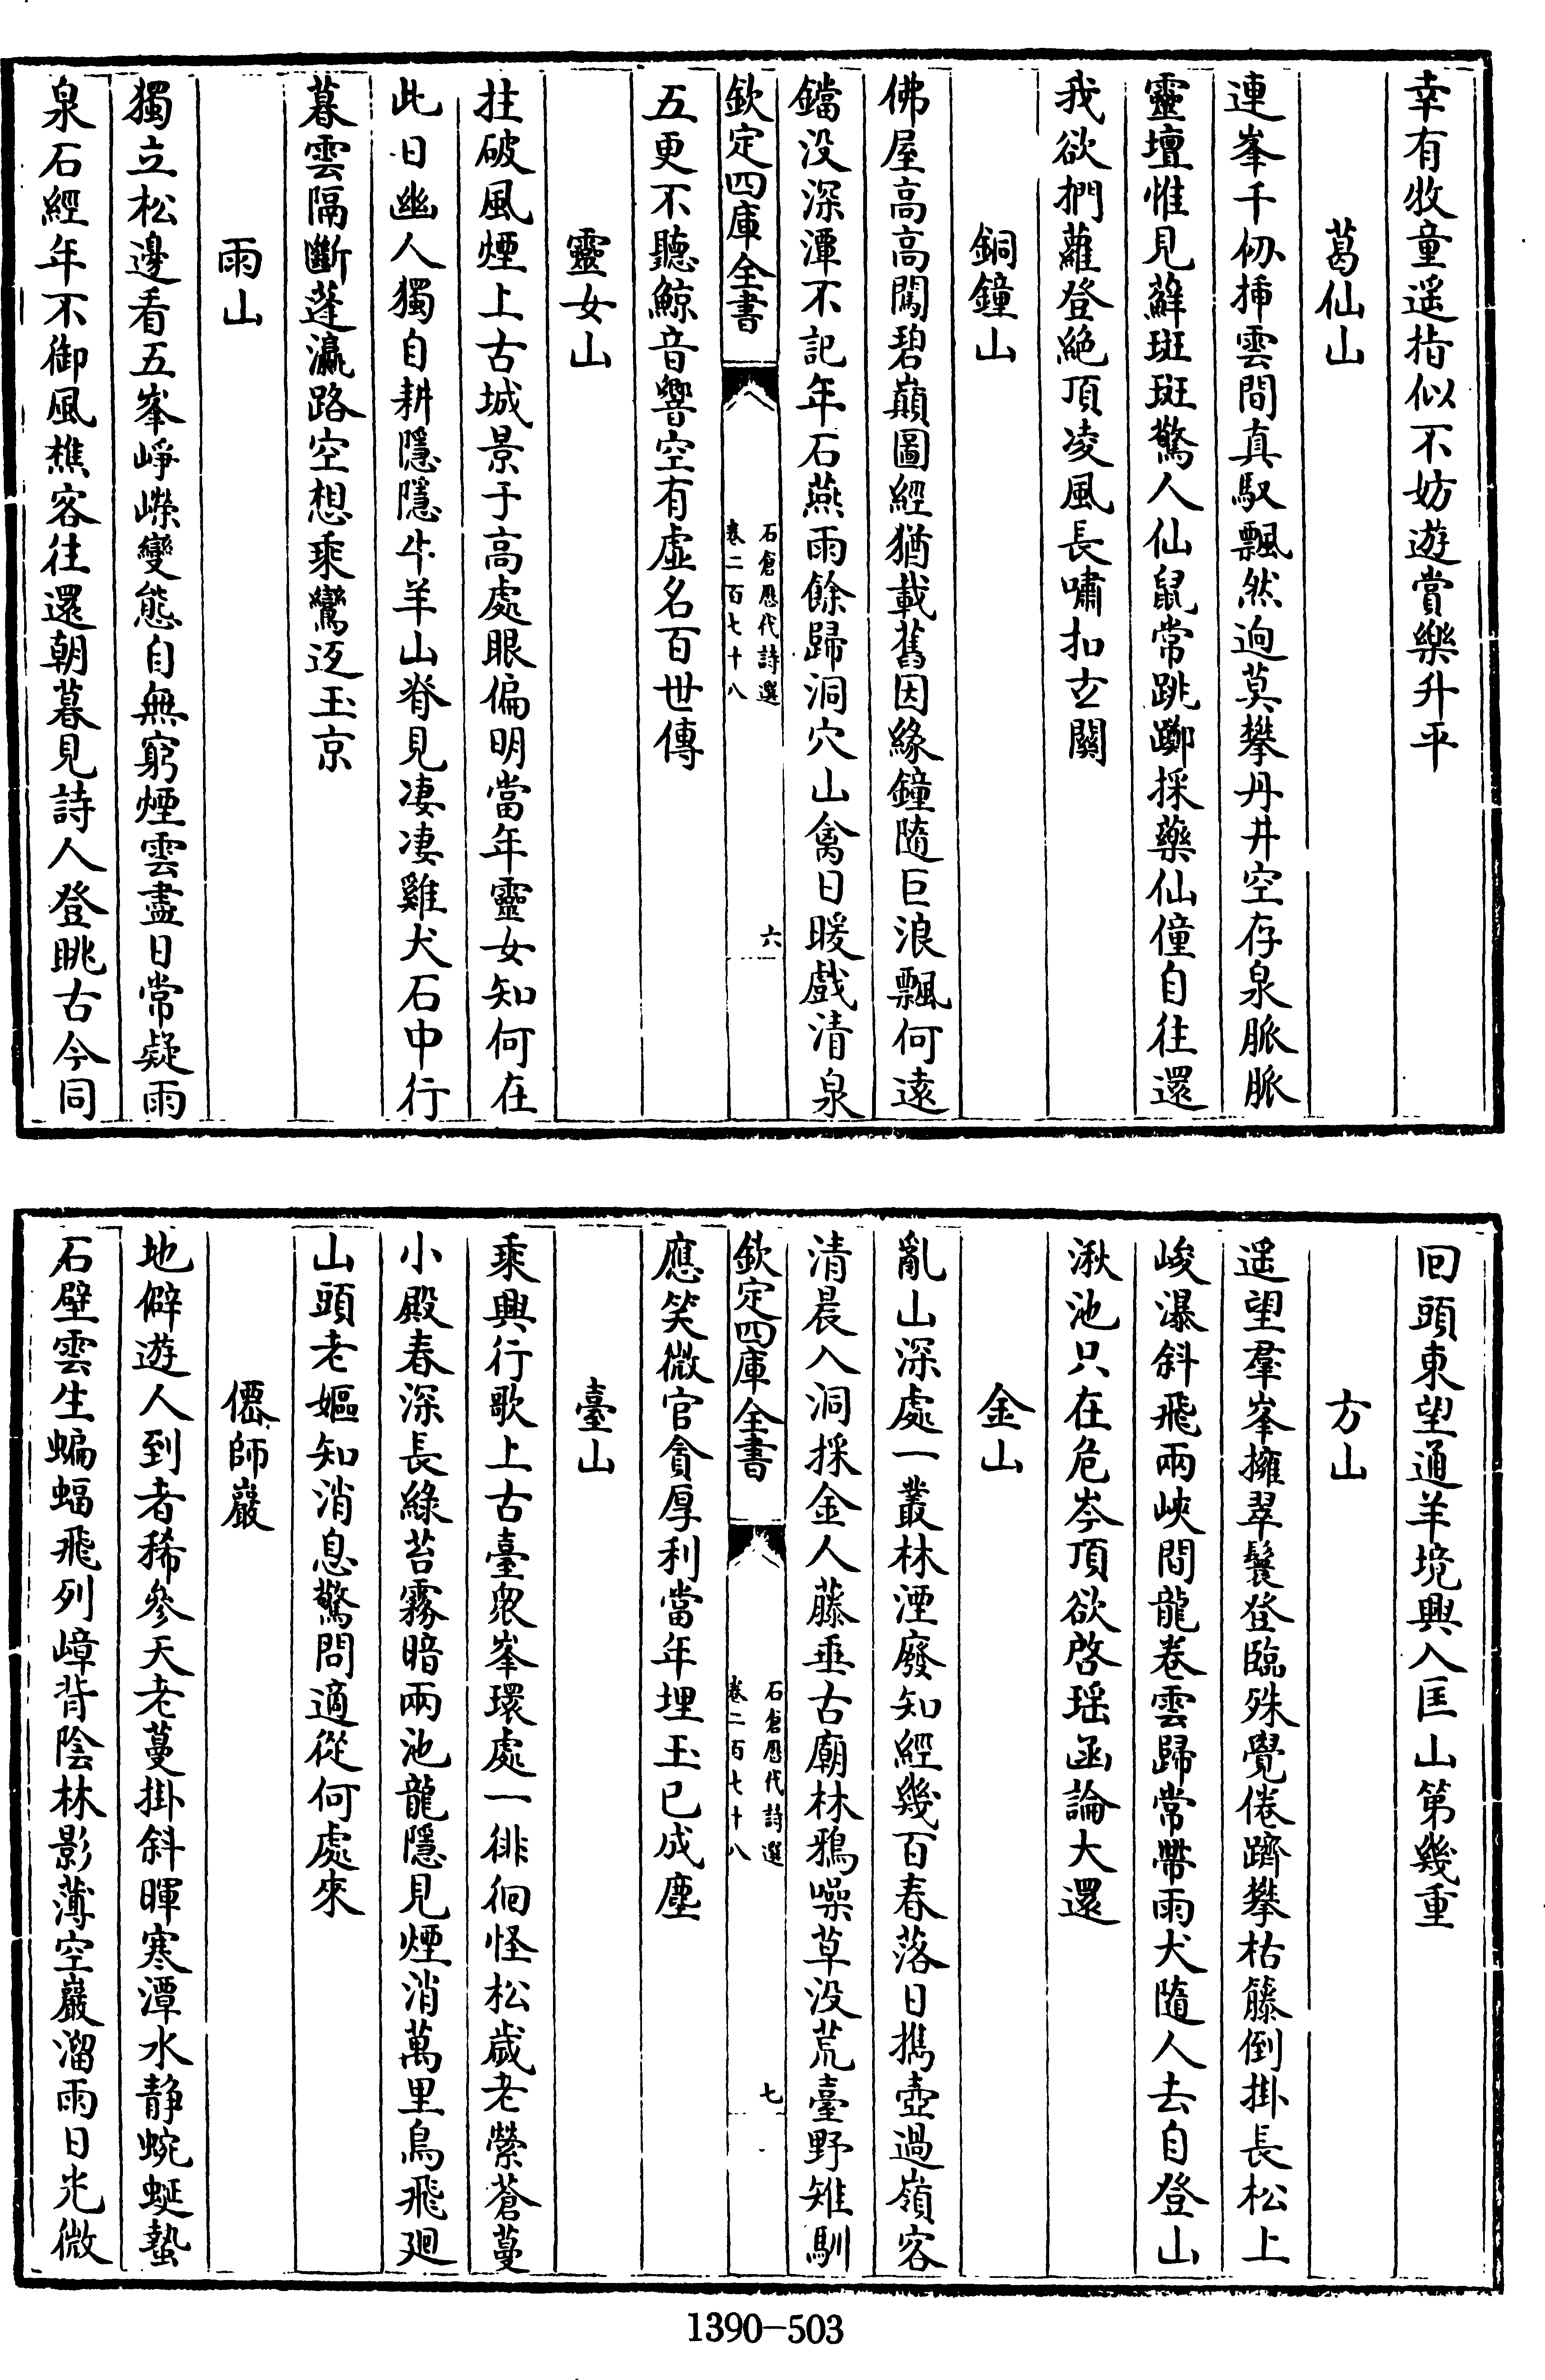 幸有牧童遥指似不妨遊賞樂升平
葛仙山
連峯千仞揷雲間真馭飄然逈莫攀丹井空存泉脈脈
靈壇惟見蘚斑斑驚人仙鼠常跳躑採藥仙僮自往還
我欲捫蘿登絶頂凌風長嘯扣𤣥闗
銅鐘山
佛屋高高闖碧巔圖經猶載舊因緣鐘隨巨浪飄何逺
鐺没深潭不記年石燕雨餘歸洞穴山禽日暖戲清泉
欽定四庫全書
石倉厯代詩選
卷二百七十八
六
五更不聽鯨音響空有虛名百世傳
靈女山
拄破風煙上古城景于高處眼偏明當年靈女知何在
此日幽人獨自耕隱隱牛羊山脊見凄凄雞犬石中行
暮雲隔斷蓬瀛路空想乘鸞返玉京
雨山
獨立松邊看五峯崢嶸變態自無窮煙雲盡日常疑雨
泉石經年不御風樵客往還朝暮見詩人登眺古今同
回頭東望通羊境興入匡山第幾重
方山
遥望羣峯擁翠鬟登臨殊覺倦躋攀枯籐倒掛長松上
峻瀑斜飛兩峽間龍卷雲歸常帶雨犬隨人去自登山
湫池只在危岑頂欲啓瑶函論大還
金山
亂山深處一叢林湮廢知經幾百春落日携壺過嶺客
清晨入洞採金人藤垂古廟林鴉噪草没荒臺野雉馴
欽定四庫全書
石倉厯代詩選
卷二百七十八
七
應笑微官貪厚利當年埋玉已成塵
臺山
乘興行歌上古臺衆峯環處一徘徊怪松歲老縈蒼蔓
小殿春深長綠苔霧暗兩池龍隱見煙消萬里鳥飛廻
山頭老嫗知消息驚問適從何處來
僊師巖
地僻遊人到者稀參天老蔓掛斜暉寒潭水静蜿蜒蟄
石壁雲生蝙蝠飛列嶂背陰林影薄空巖溜雨日光微
1390-503